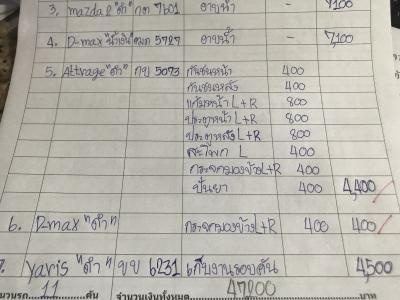 3. mazda2 "ดำ" กต 7601 อาบน้ำ -
4. D-max "น้ำเงิน" 5727 อาบน้ำ - 7,100
5. Attrage "ดำ" กข 5073 กันชนหน้า 400
กันชนหลัง 400
แก้มหน้า L+R 800
ประตูหน้า L+R 800
ประตูหลัง L+R 800
สะโพก L 400
กระจกมองข้าง L+R 400
ปั่นยา 400 4,400
6. D-max "ดำ" กระจกมองข้าง L+R 400 400
7. yaris "ดำ" ขข 6231 เก็บงานรอบคัน 4,500
นวนรถ 11 คัน จำนวนเงินทั้งหมด 47,200 บาท